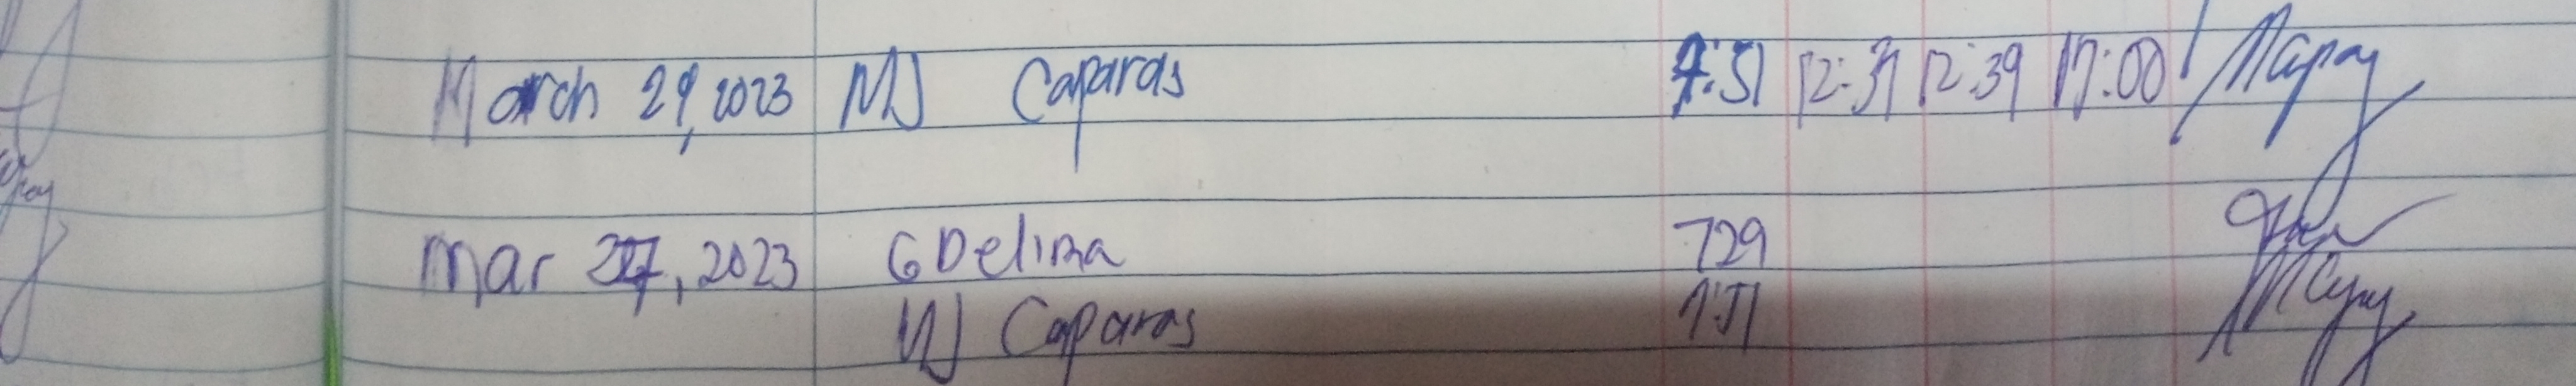 March 29, 2023 MJ Caparas 7:51 12:37 12:39 17:00
Mar 27, 2023 G Delima 729
MJ Caparas 7:51